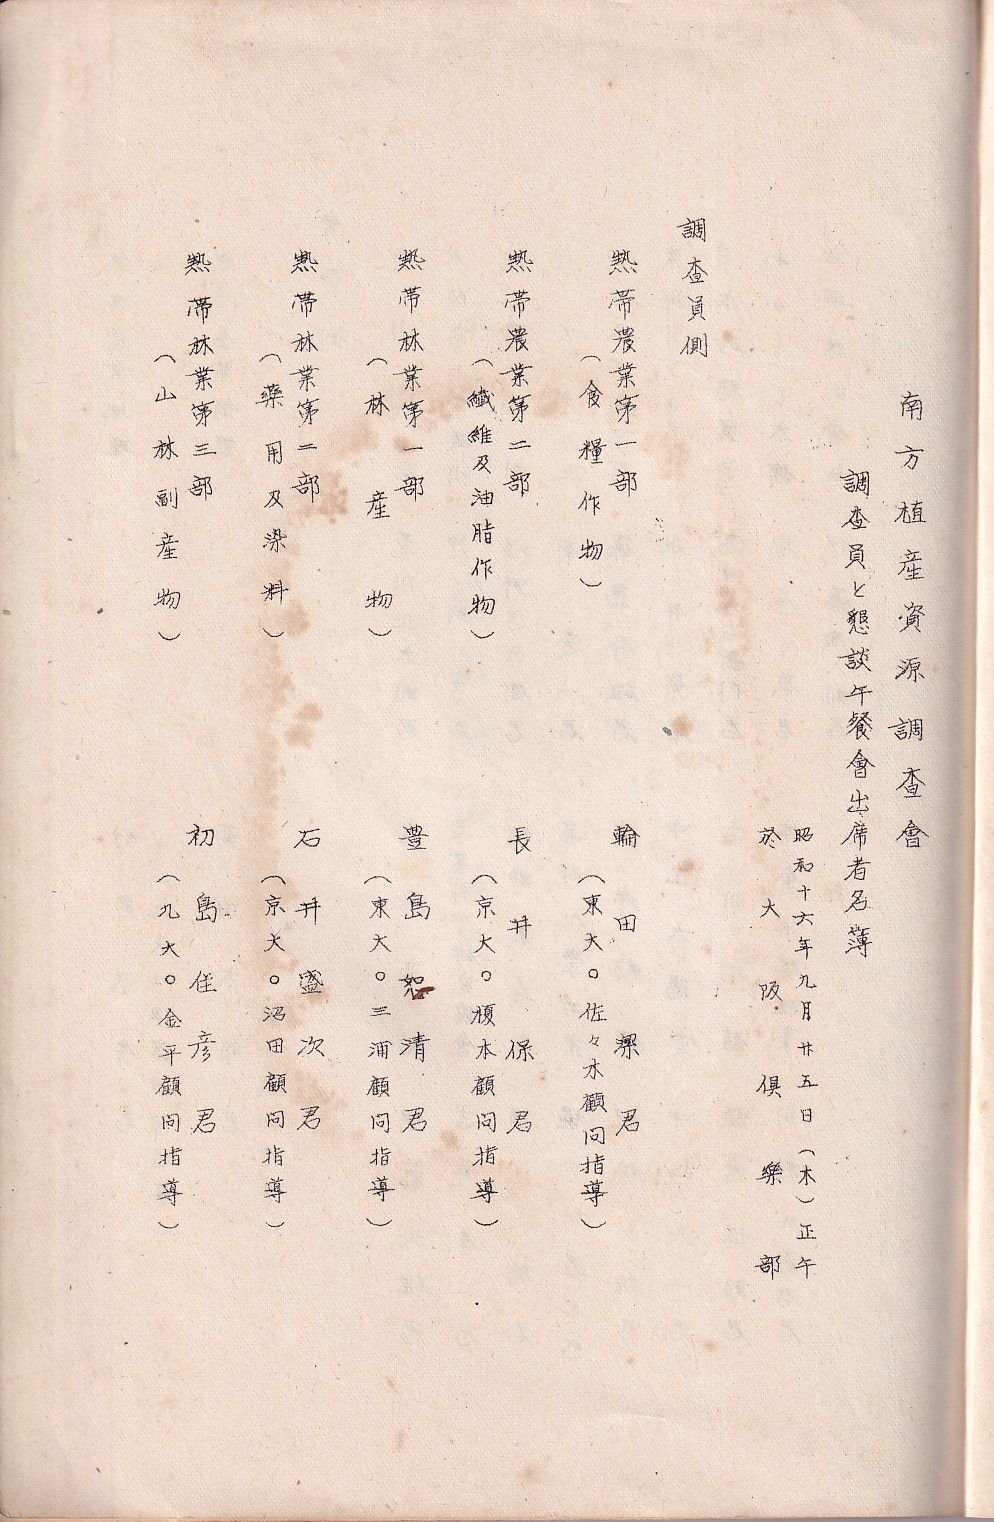 南方植産資源調査會
調査員と懇談午餐會出席者名簿
昭和十六年九月廿五日(木)正午
於大阪倶樂部
調査員側
熱帯農業第一部 輪田潔君
(食糧作物) (東大。佐々木顧問指導)
熱帯農業第二部 長井保君
(繊維及油脂作物) (京大。榎本顧問指導)
熱帯林業第一部 豊島恕清君
(林産物) (東大。三浦顧問指導)
熱帯林業第二部 石井盛次君
(藥用及染料) (京大。沼田顧問指導)
熱帯林業第三部 初島住彦君
(山林副産物) (九大。金平顧問指導)